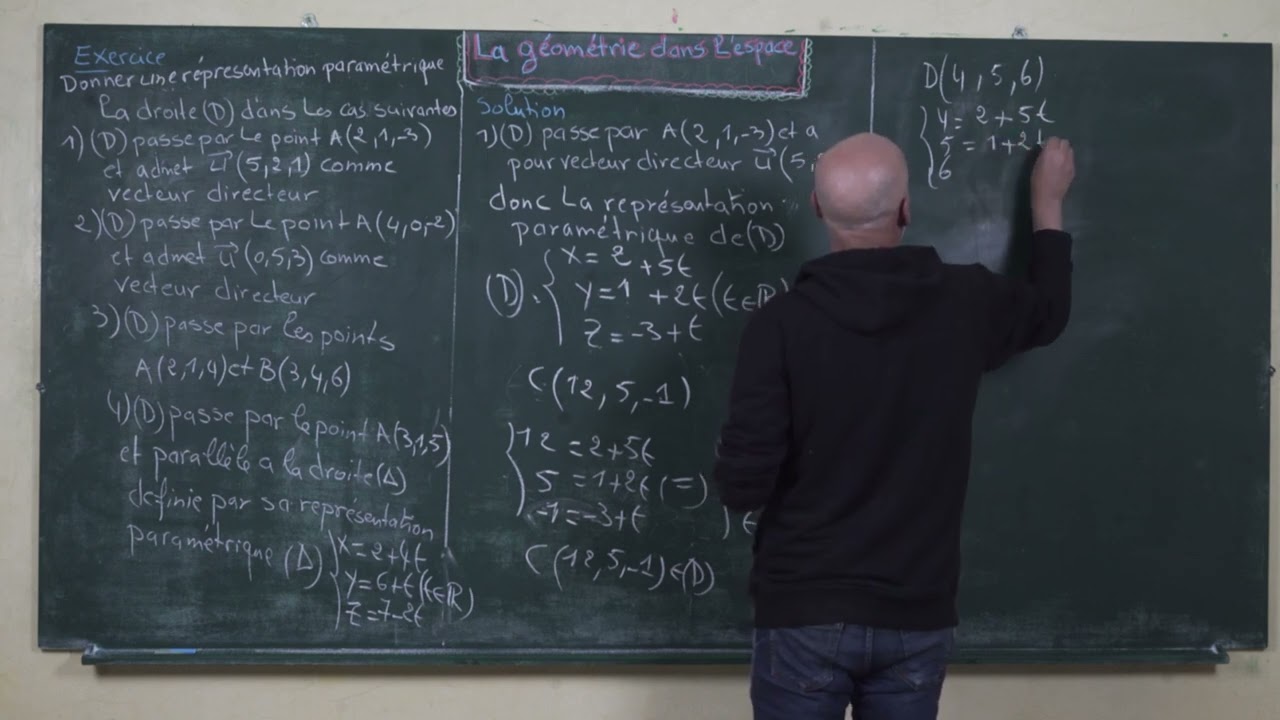 La géométrie dans L'espace
Exercice
Donner une réprésentation paramétrique
La droite (D) dans Les cas suivantes
1) (D) passe par Le point A(2,1,-3)
et admet u⃗ (5,2,1) comme
vecteur directeur
2) (D) passe par Le point A(4,0,-2)
et admet u⃗ (0,5,3) comme
vecteur directeur
3) (D) passe par les points
A(2,1,4) et B(3,4,6)
4) (D) passe par le point A(3,1,5)
et parallèle a la droite (Δ)
definie par sa représentation
paramétrique (Δ)
x=2+4t
y=6+t (t∈ℝ)
z=7-2t
Solution
1) (D) passe par A(2,1,-3) et a
pour vecteur directeur u⃗ (5,
donc La représontation
paramétrique de (D)
(D).
x=2+5t
y=1+2t (t∈ℝ)
z=-3+t
C(12,5,-1)
12=2+5t
5=1+2t (=)
-1=-3+t
C(12,5,-1)∈(D)
D(4,5,6)
4=2+5t
5=1+2t
6